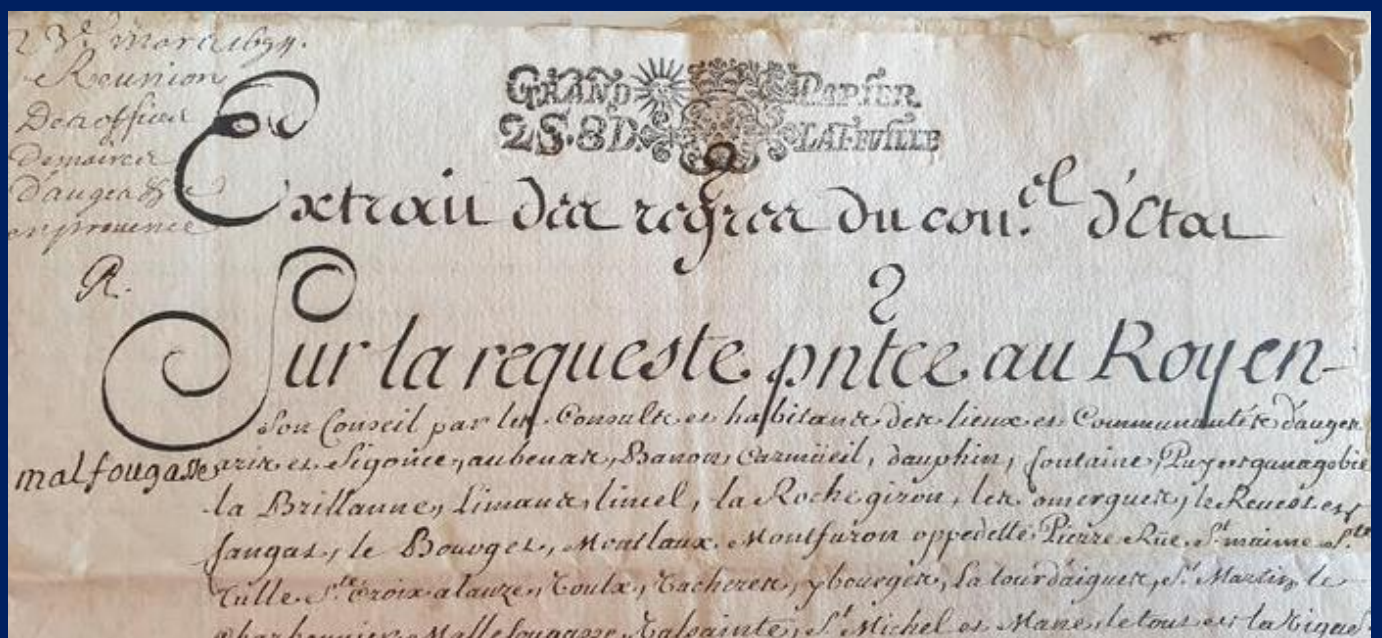 23e mars 1694.
Reunion
Des offices
De maires
d'auges &c
en provence
R.
GRAND PAPIER
2S.8D. LA FEVILLE
Extrait des regres du con.el d'Etat
Sur la requeste pntee au Roy en
son Conseil par les Consuls et habitans des lieux et Communautés d'auges
malfougasse
aris et Sigonce, aubenas, Banon, Carnüeil, dauphin, fontaine, Puy et ganagobie
la Brillanne, Limans, lincel, la Roche giron, les omergues, le Revest et
fangas, le Bourget, Montlaux, Montfuron oppedette, Pierre Rüe, St. maime Ste
Tulle, Ste. Croix alauze, Toulx, Vacheres, ybourges, La tour d'aigues, St. Martin, le
Charbonnier, Mallefougasse, Valsainte, St. Michel et Mane, le tout et la